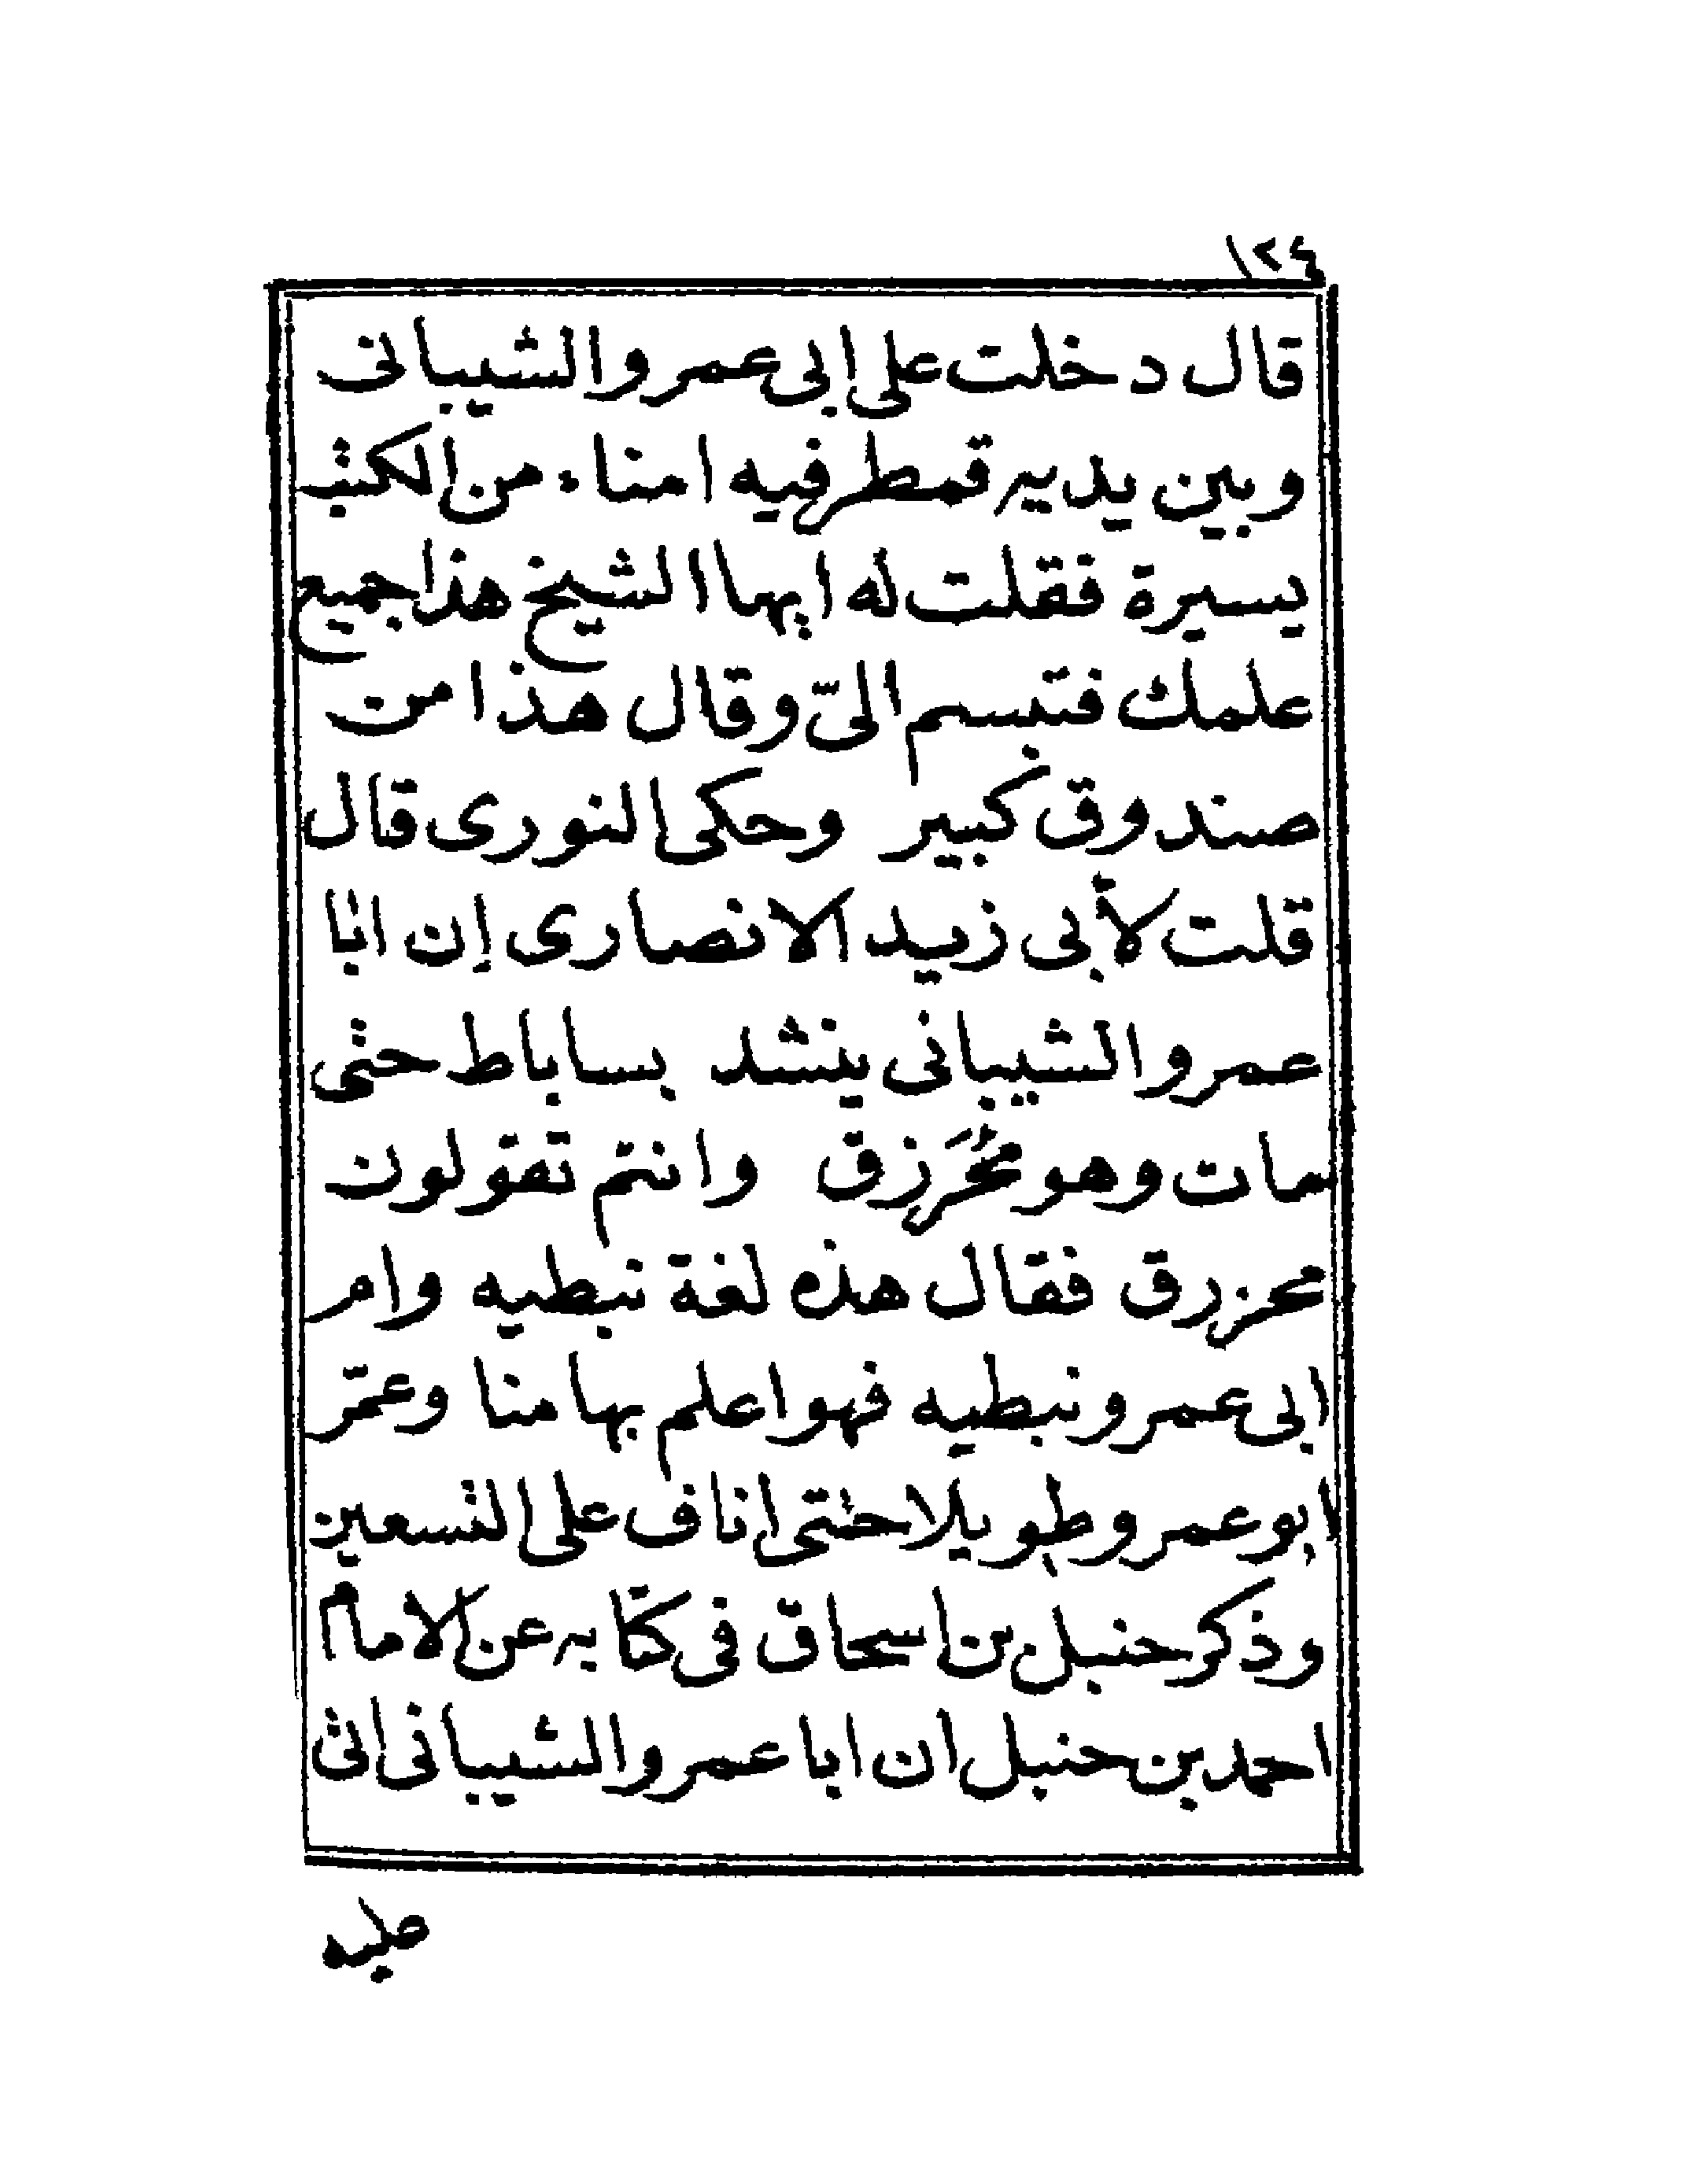 ١٢٤
قال دخلت على ابى عمرو الشيبانى
وبين يديه قمطر فيه امناء من الكتب
يسيرة فقلت له ايها الشيخ هذا جميع
علمك فتبسم الىّ وقال هذا من
صندوق كبير وحكى النورى قال
قلت لأبى زيد الانصارى إن ابا
عمرو الشيبانى ينشد بساباط حتى
مات وهو مُحَرزق وانتم تقولون
محزرق فقال هذه لغة نبطيه وام
ابى عمرو نبطيه فهو اعلم بها منا وعمّر
ابو عمرو طويلا حتى اناف على التسعين
وذكر حنبل بن اسحاق فى كتابه عن الامام
احمد بن حنبل ان ابا عمرو الشيبانى اتى
عليه